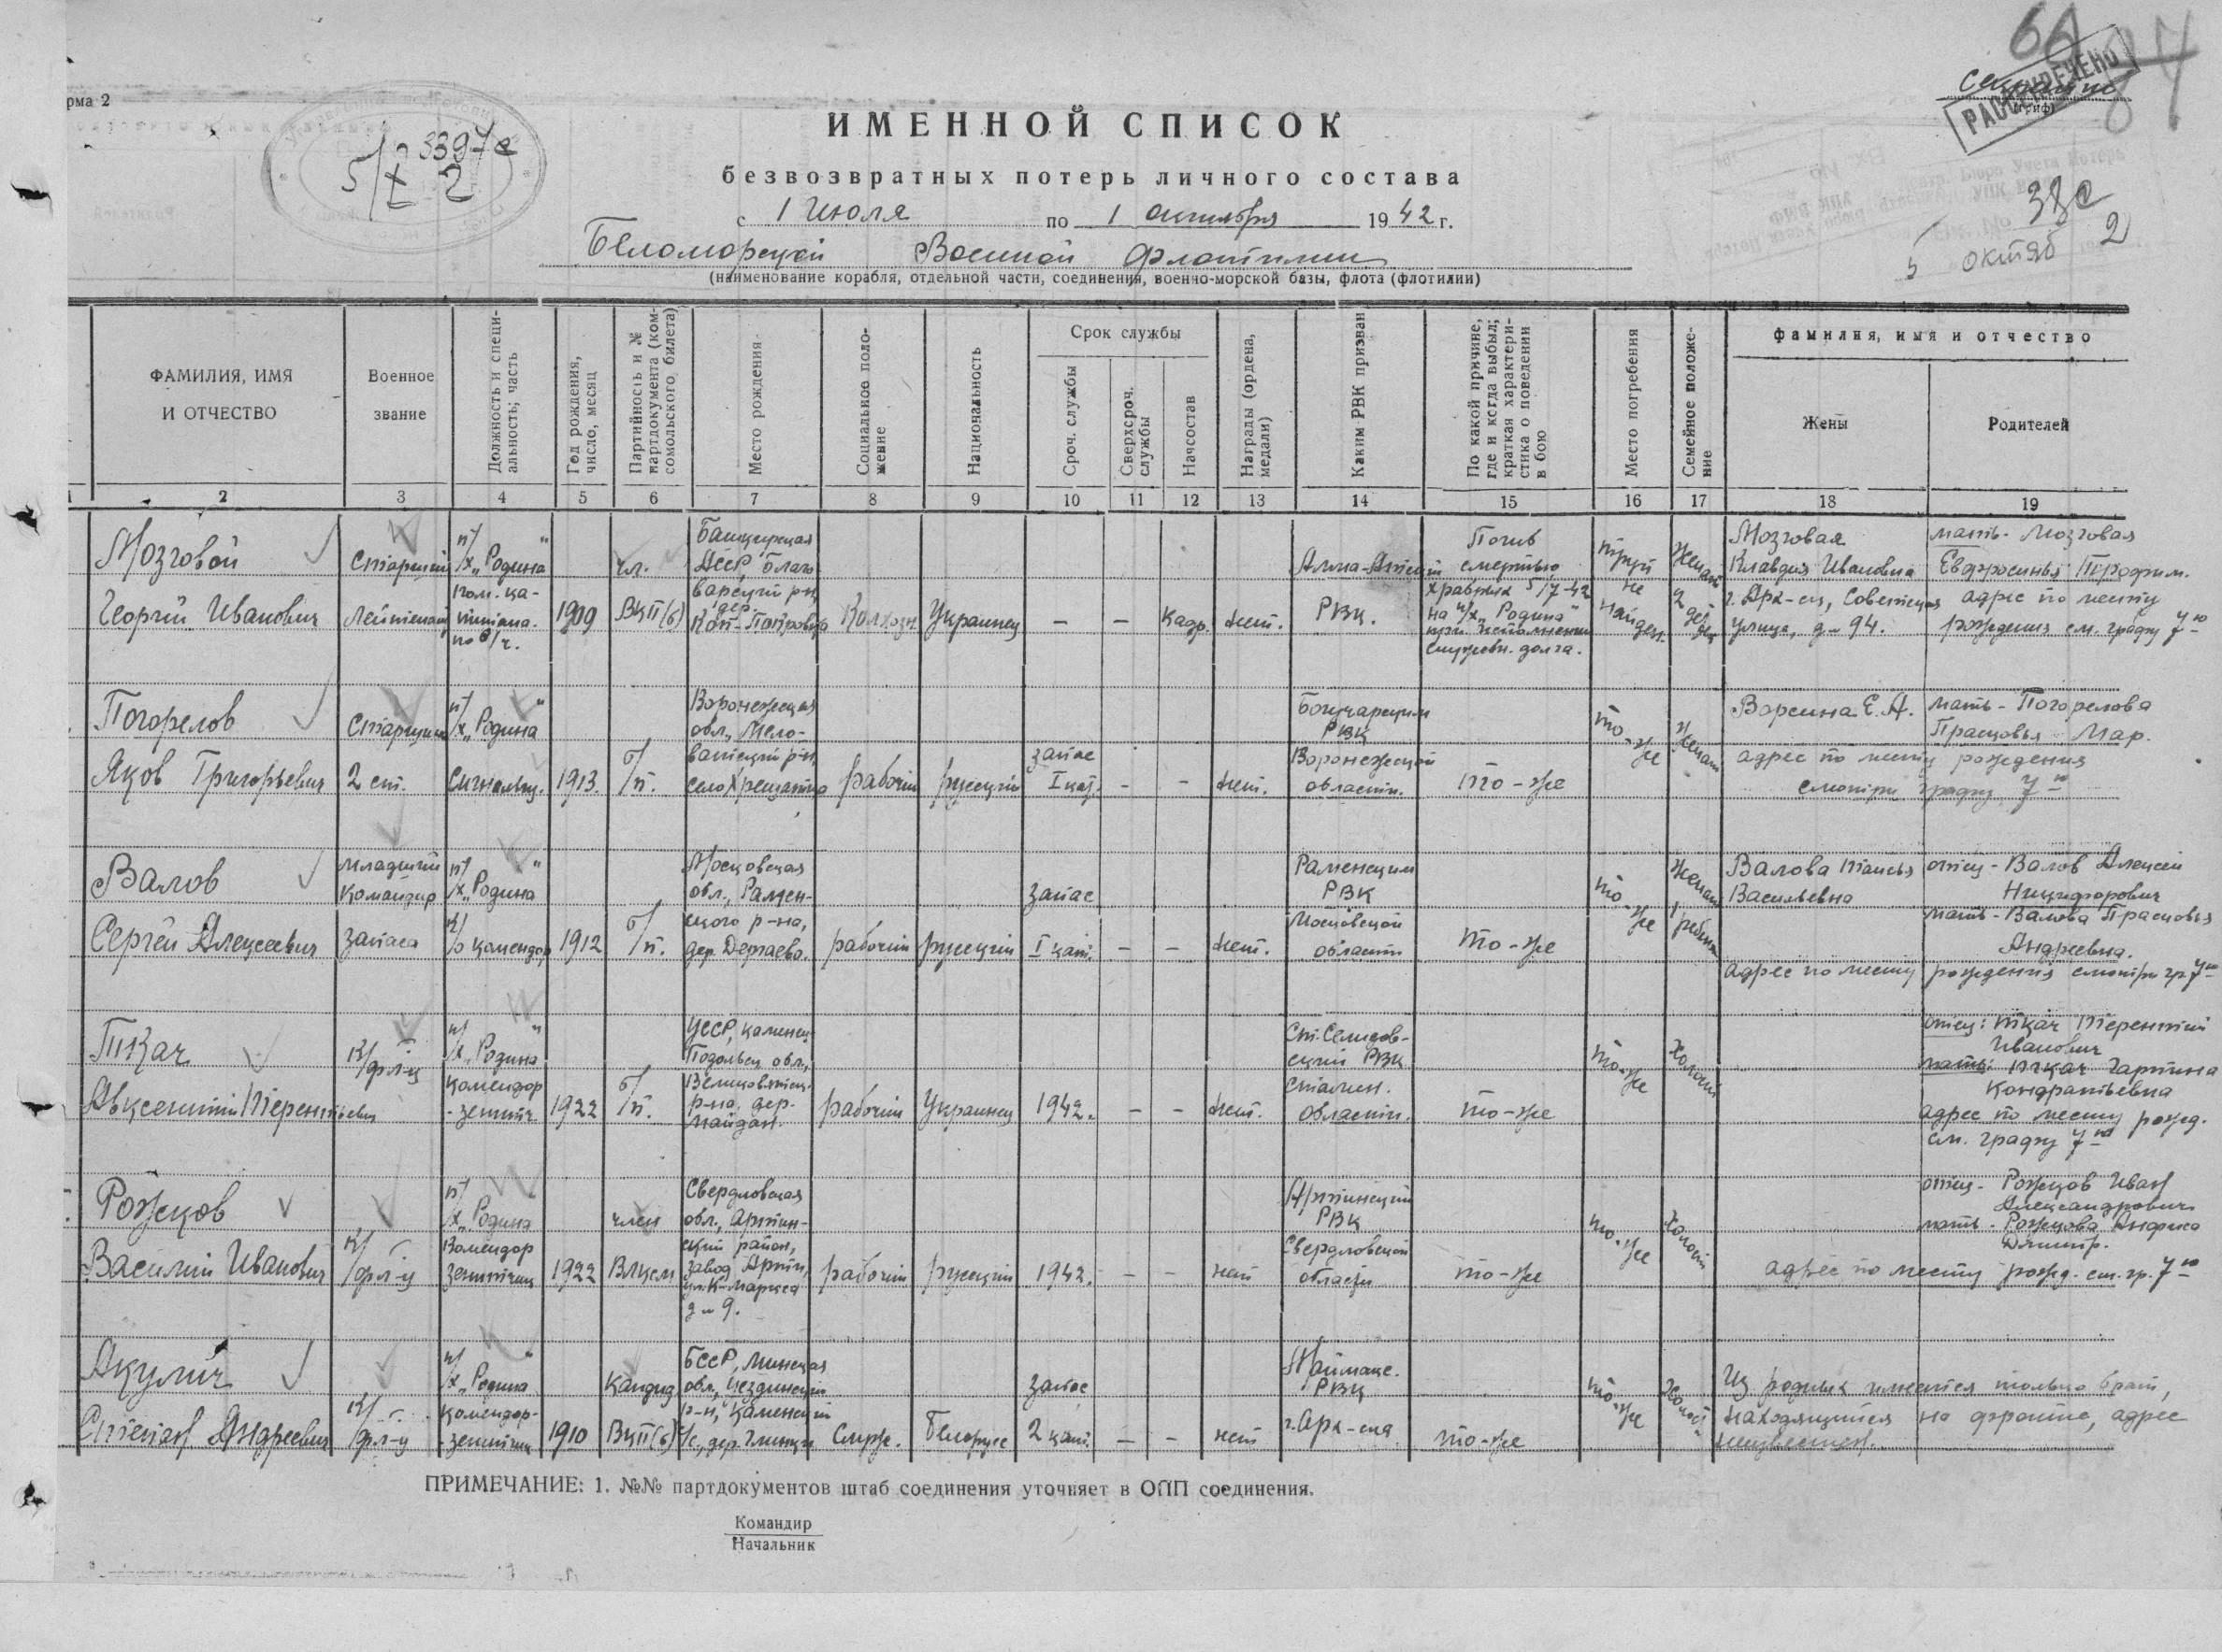 64
84
рма 2
Секретно
(гриф)
РАССЕКРЕЧЕНО
3397с
5/X 2
ИМЕННОЙ СПИСОК
безвозвратных потерь личного состава
с 1 Июля по 1 октября 1942 г.
Беломорской Военной Флотилии
(наименование корабля, отдельной части, соединения, военно-морской базы, флота (флотилии)
38с
5 октяб 2
ФАМИЛИЯ, ИМЯ
И ОТЧЕСТВО
Военное
звание
Должность и специ-
альность; часть
Год рождения,
число, месяц
Партийность и №
партдокумента (ком-
сомольского билета)
Место рождения
Социальное поло-
жение
Национальность
Срок службы
Сроч. службы
Сверхсроч.
службы
Начсостав
Награды (ордена,
медали)
Каким РВК призван
По какой причине,
где и когда выбыл;
краткая характери-
стика о поведении
в бою
Место погребения
Семейное положе-
ние
фамилия, имя и отчество
Жены
Родителей
1 2 3 4 5 6 7 8 9 10 11 12 13 14 15 16 17 18 19
Мозговой
Георгий Иванович
Старший
Лейтенант
п/х „Родина"
пом. ка-
питана
по в/ч.
1909
чл.
ВКП(б)
Башкирская
АССР, Благо
варский р-н,
дер.
Коп-Покровка
Колхозн.
Украинец
—
—
Кадр.
нет.
Алма-Атин
РВК.
Погиб
смертью
храбрых 5/7-42
на п/х „Родина"
при исполнении
служебн. долга.
труп
не
найден.
Женат
2
детей
Мозговая
Клавдия Ивановна
г. Арх-ск, Советская
улица, д-94.
мать - Мозговая
Евфросинья Трофим.
адрес по месту
рождения см. графу 7ю
Погорелов
Яков Григорьевич
Старшина
2 ст.
п/х „Родина"
Сигнальщ.
1913.
б/п.
Воронежская
обл., Мело-
ватский р-н,
село Хрещатка
рабочий
русский
запас
I кат.
-
-
нет.
Бончарским
РВК
Воронежской
области.
то-же
то-же
Женат
Ворсина Е.А.
мать - Погорелова
Прасковья Мар.
адрес по месту рождения
смотри графу 7ю
Валов
Сергей Алексеевич
младший
командир
запаса
п/х „Родина"
к/о комендор
1912
б/п.
Московская
обл., Рамен-
ского р-на,
дер. Дергаево.
рабочий
русский
запас
I кат.
-
-
нет.
Раменским
РВК
Московской
области
то-же
то-же
Женат
1 ребенок
Валова Таисья
Васильевна
отец - Валов Алексей
Никифорович
мать - Валова Прасковья
Андреевна.
адрес по месту рождения смотри гр 7ю
Ткач
Авксентий Терентьевич
К/фл-ц
п/х „Родина"
комендор
-зенитч.
1922
б/п.
УССР, Каменец
Подольск обл.,
р-на, дер.
Майдан.
рабочий
Украинец
1942г.
-
-
нет.
Ст. Селидов-
ский РВК
Сталин.
области.
то-же
то-же
Холост
отец: Ткач Терентий
Иванович
мать: Ткач Гарпина
Кондратьевна
адрес по месту рожд.
см. графу 7ю
Рожков
Василий Иванович
К/фл-ц
п/х „Родина
Комендор
зенитчик
1922
член
ВЛКСМ
Свердловская
обл., Артин-
ский район,
завод Арти,
ул. К-Маркса
д-9.
рабочий
русский
1942.
-
-
нет
Артинский
РВК
Свердловской
области
то-же
то-же
холост
отец - Рожков Иван
Александрович
мать - Рожкова Анфиса
Дмитр.
адрес по месту рожд. см. гр. 7ю
Акулич
Степан Андреевич
К/фл-ц
п/х „Родина"
комендор-
-зенитчик
1910
кандид
ВКП(б)
БССР, Минская
обл.,
р-н, Каменский
с/с, дер.
Служ.
Белорусс
запас
2 кат.
-
-
нет
Маймакс.
РВК
г. Арх-ска
то-же
то-же
Холост
Из родных имеется только брат,
находящийся на фронте, адрес
неизвестен.
ПРИМЕЧАНИЕ: 1. №№ партдокументов штаб соединения уточняет в ОПП соединения.
Командир
Начальник